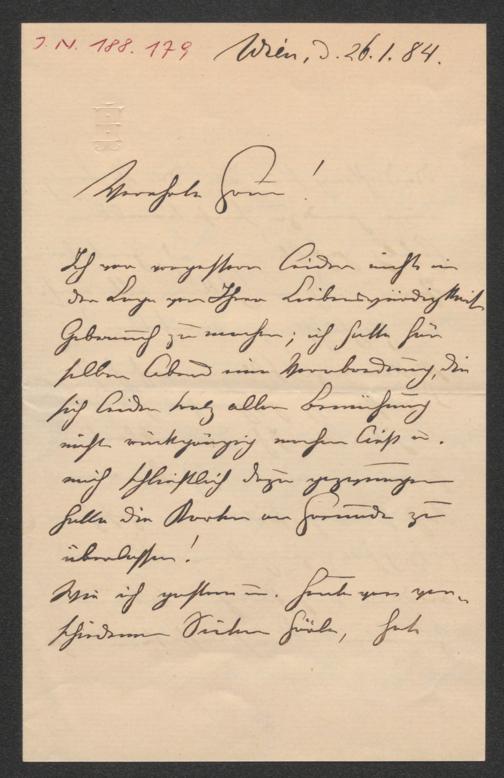 J. N. 188.179
Wien, d. 26.1.84.
Verehrte Frau!
Ich war vorgestern leider nicht in
der Lage von Ihrer Liebenswürdigkeit
Gebrauch zu machen; ich hatte für
selben Abend eine Verabredung, die
sich leider trotz aller Bemühung
nicht rückgängig machen ließ u.
mich schließlich dazu gezwungen
hatte die Karten an Freunde zu
überlassen!
Wie ich gestern u. heute von ver-
schiedenen Seiten hörte, hat